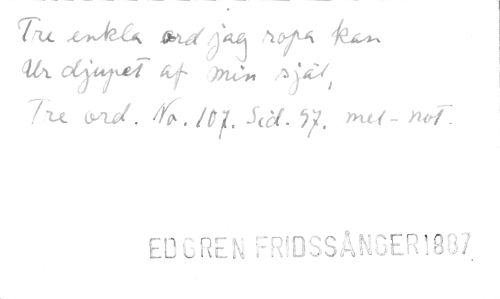 Tre enkla ord jag ropa kan
Ur djupet af min själ,
Tre ord. No. 107. Sid. 97. mel-not.
EDGREN FRIDSSÅNGER 1887